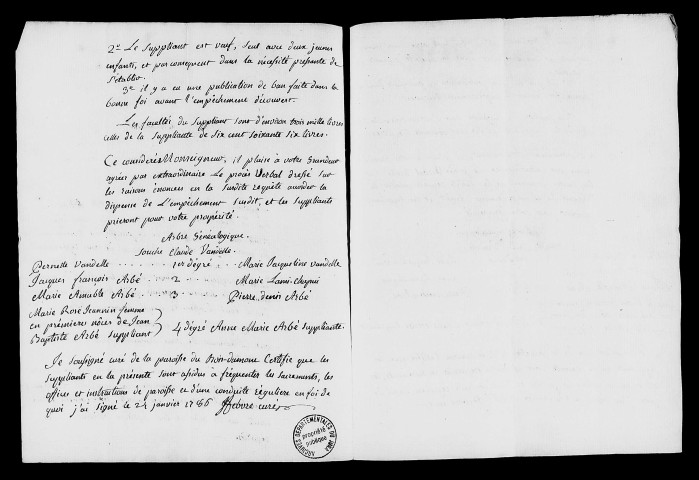 2º Le Suppliant est veuf, seul avec deux jeunes
enfants, et par consequent dans la nécessité pressante de
s'établir.
3º il y a eu une publication de ban faite dans la
bonne foi avant l'empêchement découvert.
Les facultés du Suppliant sont d'environ trois mille livres
celles de la Suppliante de Six cent soixante six livres.
Ce considerés Monseigneur, il plaise à votre Grandeur
agréer par extraordinaire Le procès Verbal dressé sur
les raisons énoncées en la susdite requête accorder la
dispense de L'empêchement susdit, et les suppliants
prieront pour votre prospérité.
Arbre Généalogique.
Souche Claude Vandelle.
Pernette Vandelle 1er degré Marie Jacqueline vandelle
Jacques françois Arbé 2 Marie Lami
Marie Amable Arbé 3 Pierre denis Arbé
Marie Rose Jeannin femme
en premières nôces de Jean
Baptiste Arbé suppliant 4 dégré Anne Marie Arbé suppliante.
Je soussigné curé de la paroisse du Bois-damont Certifie que les
suppliants en la présente sont assidus a fréquenter les sacrements, les
offices et instructions de paroisse et d'une conduite régulière en foi de
quoi j'ai signé le 24 janvier 1786 Lefebvre curé
ARCHIVES DEPARTEMENTALES DU JURA
PROPRIÉTÉ PUBLIQUE